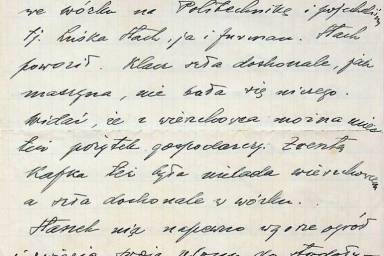 we wózku na Politechnikę i pojechali
tj. Luśka Stach, ja i furman. Stach
powoził. Klacz szła doskonale, jak
maszyna, nie bała się niczego.
Widać, że z wierzchowca można mieć
też pożytek gospodarczy. Zresztą
Kafka też była niełada wierzchowcem
a szła doskonale w wózku.
Stasek nie napewno wzorze ogród
i swoją do stodoły